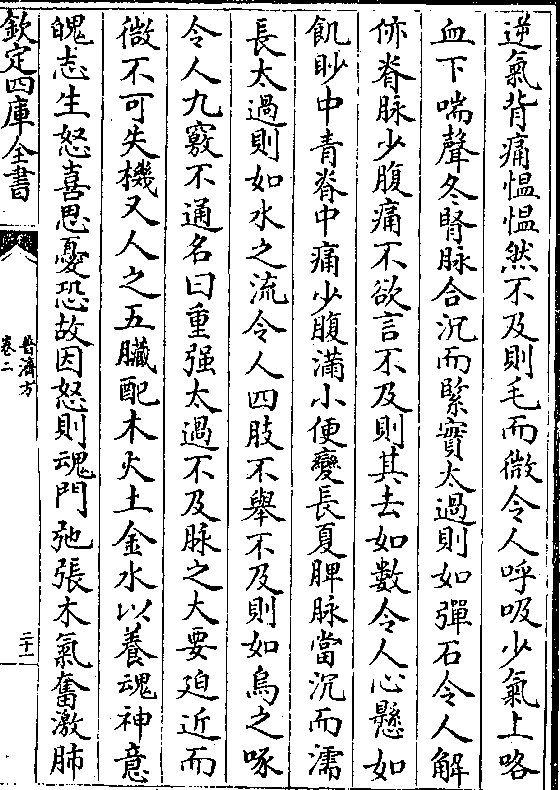 逆氣背痛愠愠然不及則毛而微令人呼吸少氣上咯
血下喘聲冬腎脉合沉而緊實太過則如彈石令人解
㑊脊脉少腹痛不欲言不及則其去如數令人心懸如
飢䏚中青脊中痛少腹滿小便變長夏脾脉當沉而濡
長太過則如水之流令人四肢不舉不及則如烏之啄
令人九竅不通名曰重强太過不及脉之大要廹近而
微不可失機又人之五臟配木火土金水以養魂神意
魄志生怒喜思憂恐故因怒則魂門弛張木氣奮激肺
欽定四庫全書
普濟方
卷二
二十一